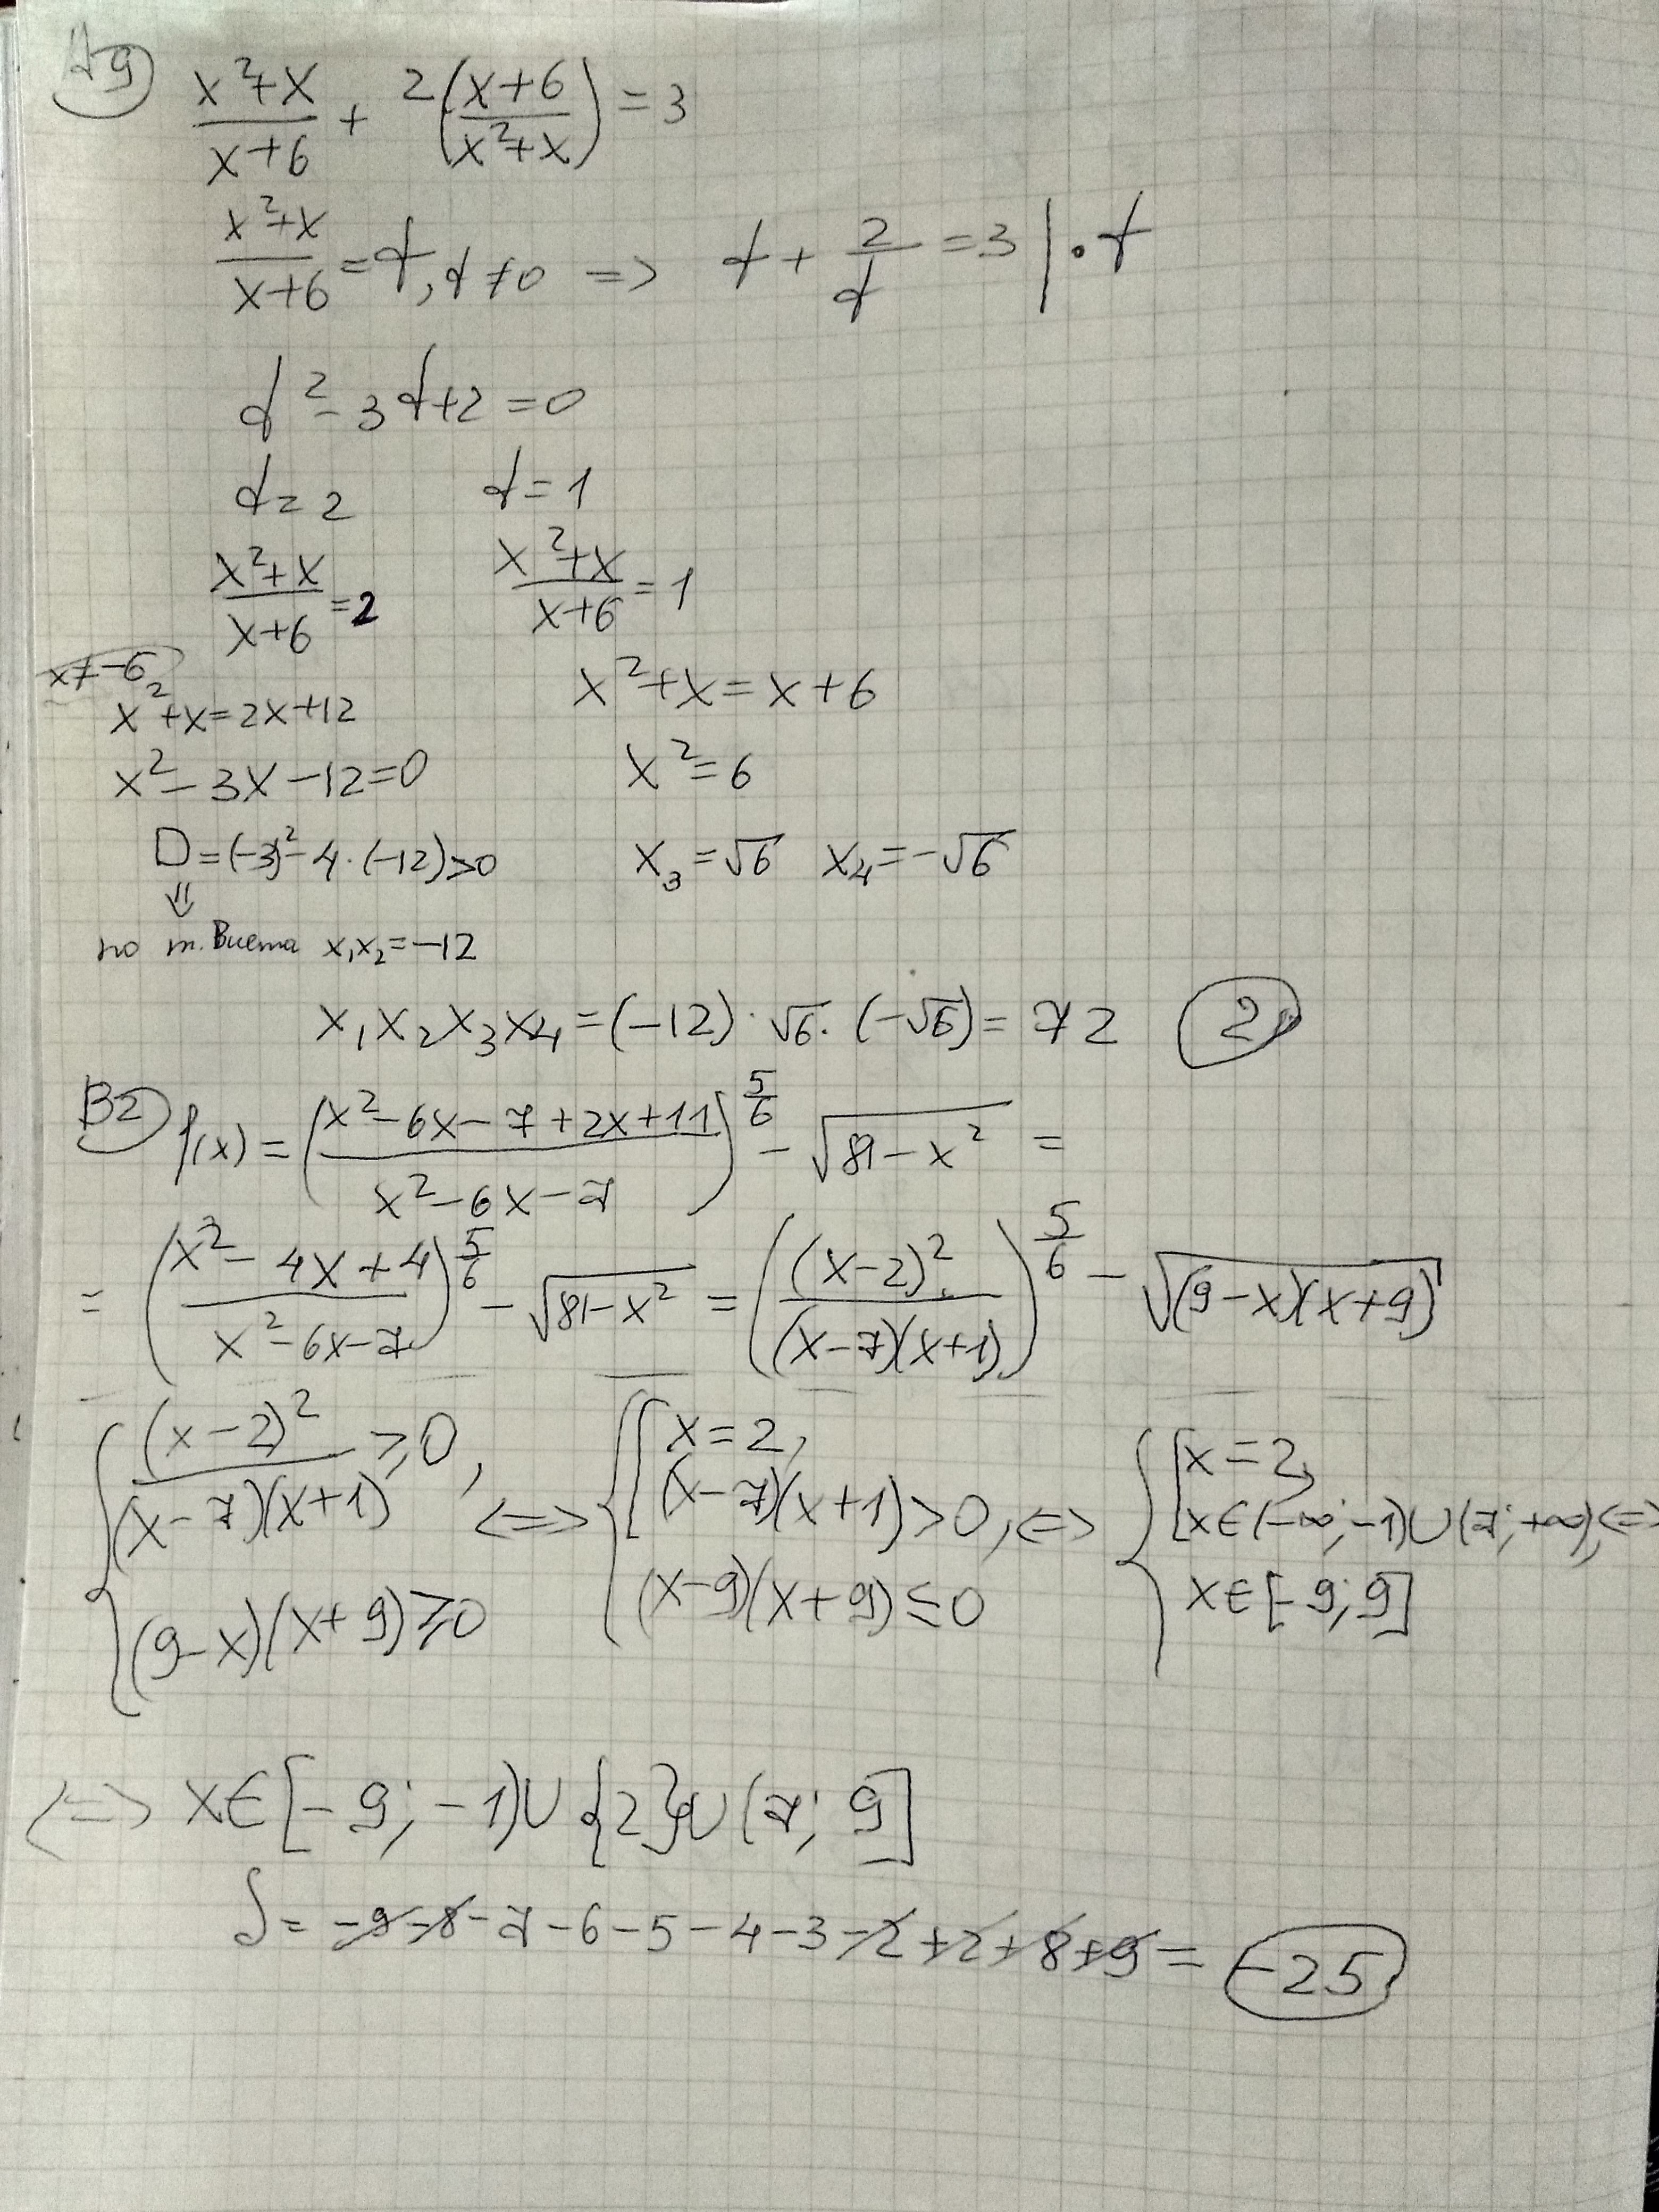 A9) (x²+x)/(x+6) + 2((x+6)/(x²+x)) = 3
(x²+x)/(x+6) = t, t≠0 => t + 2/t = 3 | · t
t² - 3t + 2 = 0
t = 2    t = 1
(x²+x)/(x+6) = 2    (x²+x)/(x+6) = 1
x≠-6
x²+x = 2x+12    x²+x = x+6
x² - 3x - 12 = 0    x² = 6
D = (-3)² - 4·(-12) > 0    x₃ = √6  x₄ = -√6
⇓
по т. Виета x₁x₂ = -12
x₁x₂x₃x₄ = (-12)·√6·(-√6) = 72  (2)
B2) f(x) = ((x² - 6x - 7 + 2x + 11)/(x² - 6x - 7))^(5/6) - √(81 - x²) =
= ((x² - 4x + 4)/(x² - 6x - 7))^(5/6) - √(81 - x²) = ((x-2)²/((x-7)(x+1)))^(5/6) - √((9-x)(x+9))
{ (x-2)²/((x-7)(x+1)) ≥ 0, (9-x)(x+9) ≥ 0 <=> { [ x = 2, (x-7)(x+1) > 0, (x-9)(x+9) ≤ 0 <=> { [ x = 2, x∈(-∞; -1)∪(7; +∞), x∈[-9; 9] <=>
<=> x∈[-9; -1)∪{2}∪(7; 9]
S = -9-8-7-6-5-4-3-2+2+8+9 = -25